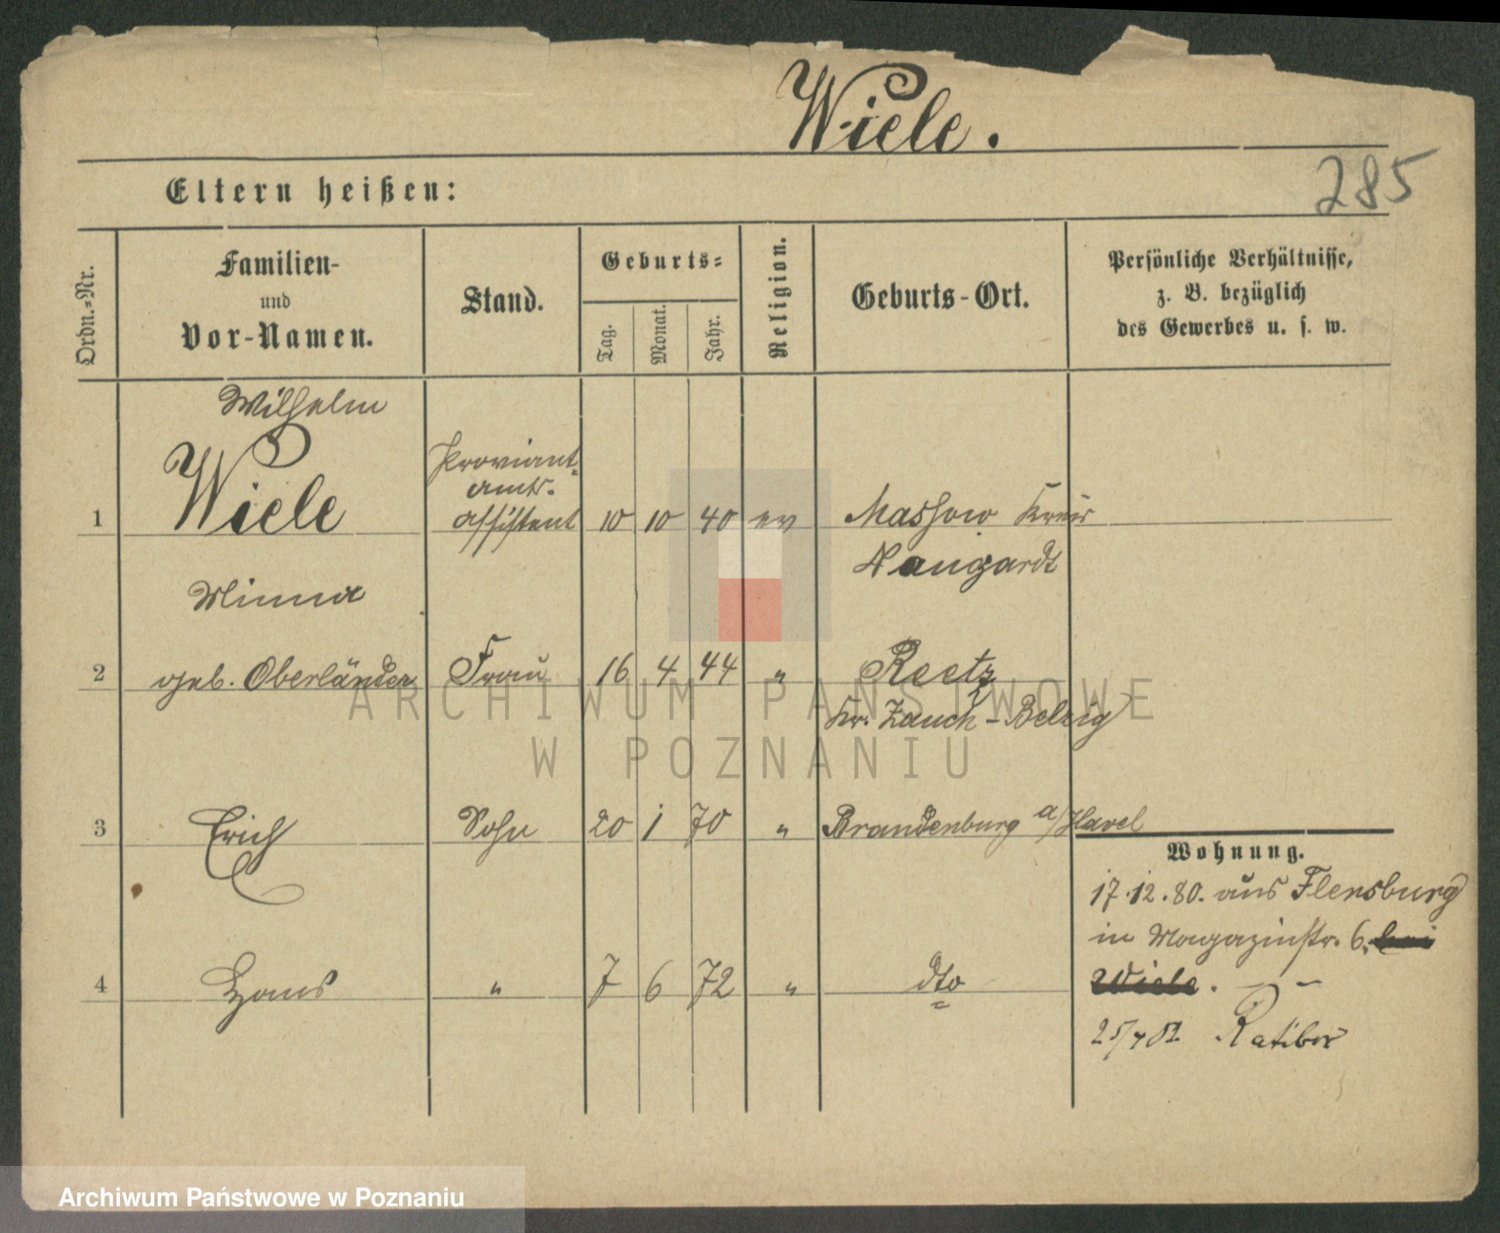 Wiele.
285
Eltern heißen:
Ordn.-Nr.
Familien-
und
Vor-Namen.
Stand.
Geburts-
Tag.
Monat.
Jahr.
Religion.
Geburts-Ort.
Persönliche Verhältnisse,
z. B. bezüglich
des Gewerbes u. s. w.
Wilhelm
1 Wiele Proviant-
amts.
assistent 10 10 40 ev Massow Kreis
Naugardt
Minna
2 geb. Oberländer Frau 16 4 44 " Reetz
Kr. Zauch-Belzig
3 Erich Sohn 20 1 70 " Brandenburg a/Havel
4 Hans " 7 6 72 " dto
Wohnung.
17.12.80. aus Flensburg
in Magazinstr. 6. bei
Wiele.
25/4 82 Ratibor
ARCHIWUM PAŃSTWOWE
W POZNANIU
Archiwum Państwowe w Poznaniu